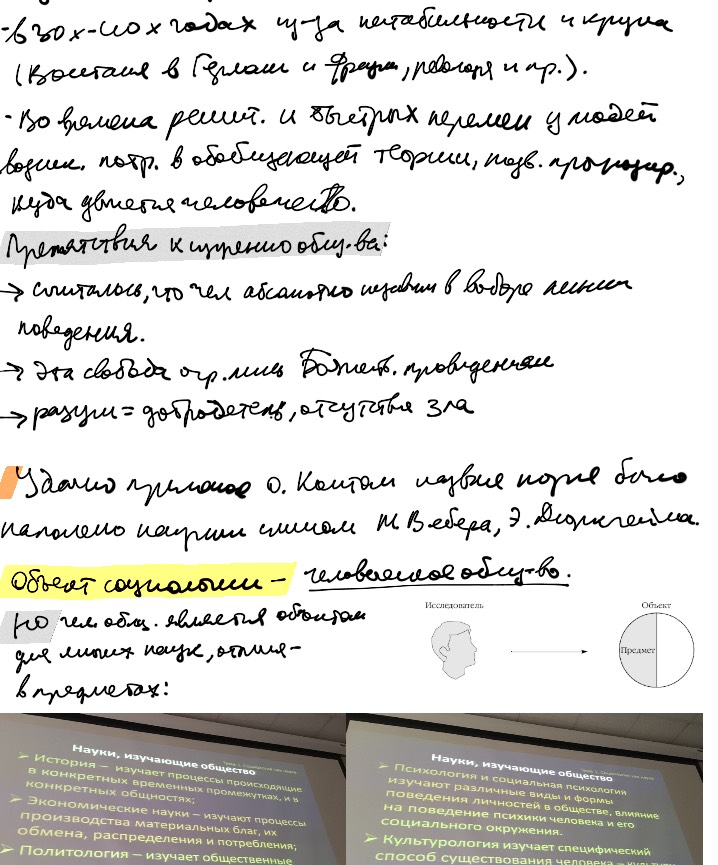 - в 30х-40х годах из-за нестабильности и кризиса
(Восстания в Германии и Франции, революция и пр.).
- Во времена решит. и быстрых перемен у людей
возник. потр. в обобщающей теории, позв. прогнозир.,
куда движется человечество.
Препятствия к изучению общ-ва:
→ считалось, что чел абсолютно независим в выборе линии
поведения.
→ Эта свобода огр. лишь Божеств. провидением
→ разум = добродетель, отсутствие зла
Удачно О. Контом название было
наполнено научным смыслом М. Вебера, Э. Дюркгейма.
Объект социологии – человеческое общ-во.
но чел общ. является объектом
для многих наук, отличия –
в предметах:
Исследователь
Объект
Предмет
Науки, изучающие общество
➢ История – изучает процессы происходящие
в конкретных временных промежутках, и в
конкретных общностях;
➢ Экономические науки – изучают процессы
производства материальных благ, их
обмена, распределения и потребления;
➢ Политология – изучает общественные
Науки, изучающие общество
➢ Психология и социальная психология
изучают различные виды и формы
поведения личностей в обществе, влияние
на поведение психики человека и его
социального окружения.
➢ Культурология изучает специфический
способ существования человека – культуру